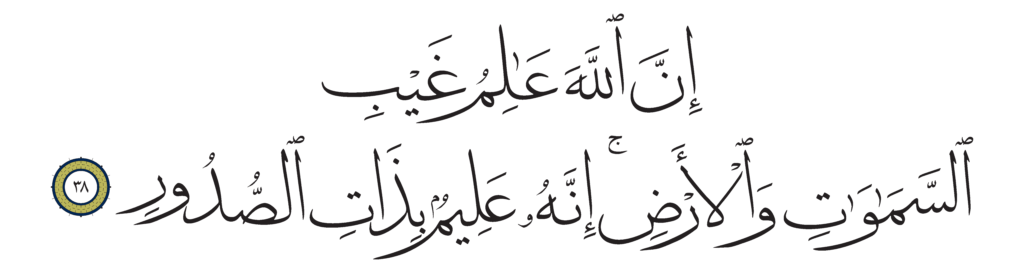 إِنَّ ٱللَّهَ عَٰلِمُ غَيْبِ
ٱلسَّمَٰوَٰتِ وَٱلْأَرْضِ ۚ إِنَّهُۥ عَلِيمٌۢ بِذَاتِ ٱلصُّدُورِ ٣٨